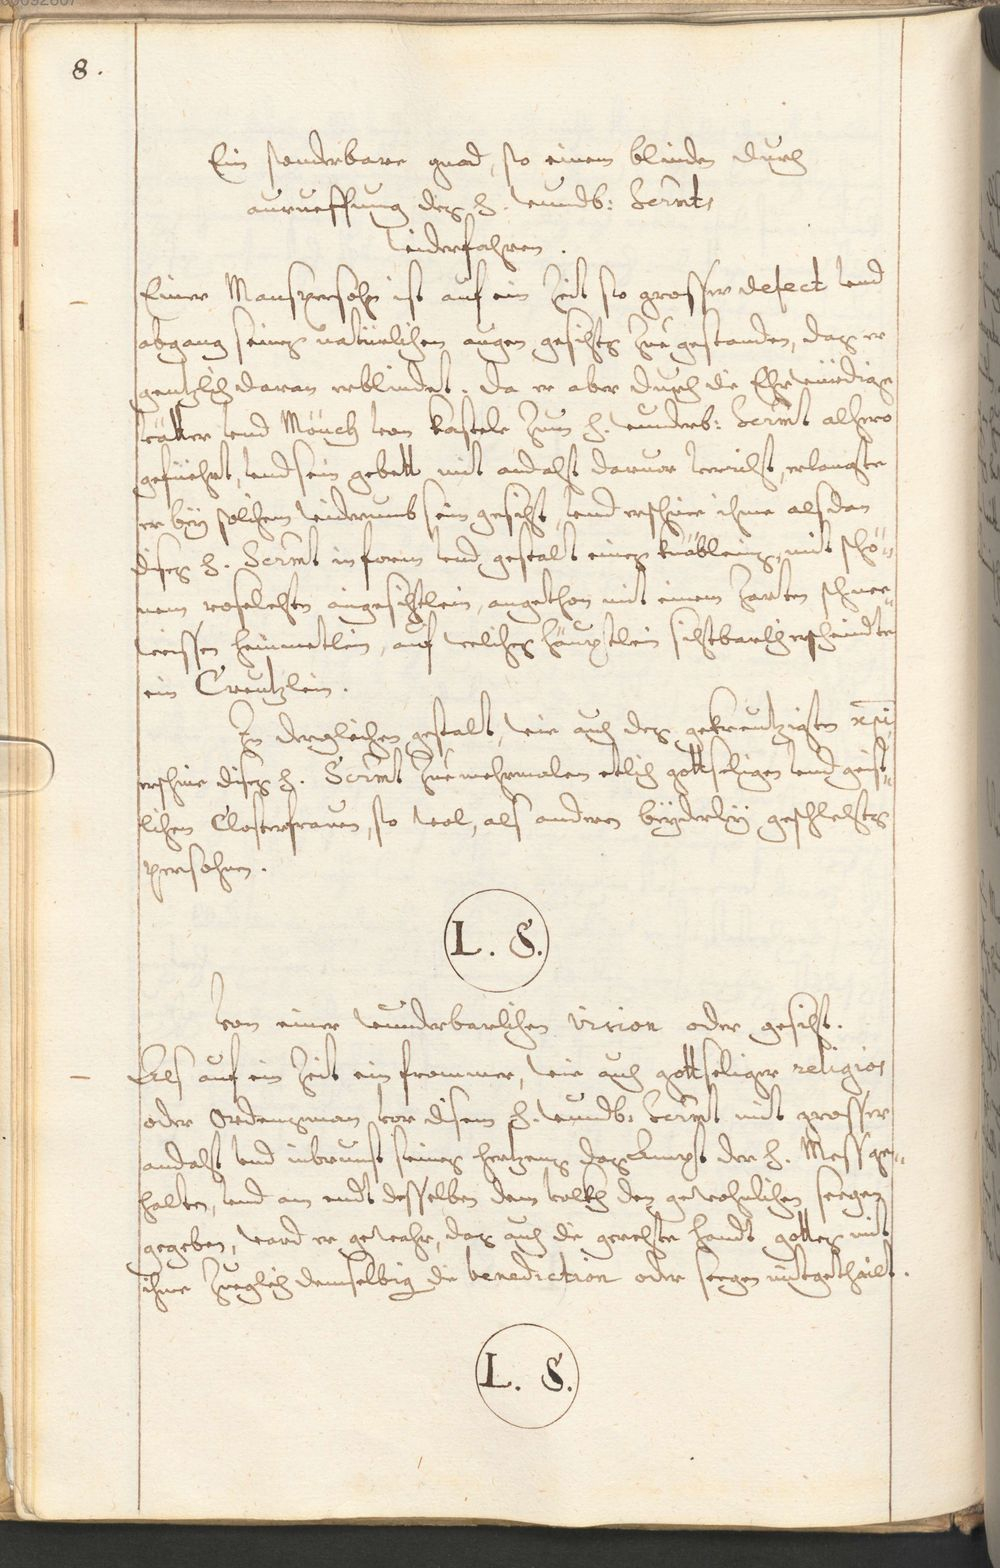 8.
Ein sonderbare gnad, so einem blinden durch
anrueffung des H. wundb: Scrmts
widerfahren.
Einer Manspersohn ist auf ein Zeit so grosser defect und
abgang seines natürlichen augen gesichts zue gestanden, das er
gentzlich daran erblindet. da er aber durch die Ehrwürdige
vätter und Mönch von kastele zum H. wunderb: Scrmt alhero
gefüehrt, und sein gebett mit andacht daruor verricht, erlangte
er bey solchem widerumb sein gesicht, und erschine ihme alsdan
dises H. Scrmt in form und gestalt eines knäbleins, mit schö-
nem roselechten angesichtlein, angethon mit einem zarten schnee-
weissen hemmetlein, auf welches häuptlein sichtbarlich erscheindte
ein Creutzlein.
In dergleichen gestalt, wie auch des gekreutzigten xpi
erschine dises H. Scrmt zue mehrmalen etlich gottseligen und geist-
lichen Closterfrauen, so wol, als anderen beyderley geschlechts
persohnen.
L. S.
Von einer wunderbarlichen vision oder gesicht.
Als auf ein Zeit ein frommer, wie auch gottseliger religios
oder Ordensman vor disem H. wundb: Scrmt mit grosser
andacht und inbrunst seines hertzens das Ampt der H. Mess ge-
halten, und am endt desselben dem volkh den gewohnlichen seegen
gegeben, ward er gewahr, das auch die gerechte handt gottes mit
ihme zugleich demselbig die benediction oder seegen mitgetheilt.
L. S.